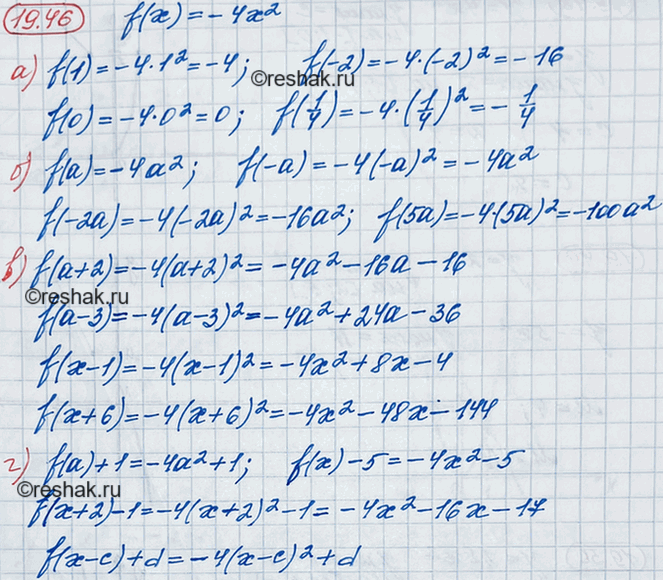 19.46 f(x) = -4x²
а) f(1) = -4·1² = -4; f(-2) = -4·(-2)² = -16
©reshak.ru
f(0) = -4·0² = 0; f(1/4) = -4·(1/4)² = -1/4
б) f(a) = -4a²; f(-a) = -4(-a)² = -4a²
f(-2a) = -4(-2a)² = -16a²; f(5a) = -4·(5a)² = -100a²
в) f(a+2) = -4(a+2)² = -4a² - 16a - 16
©reshak.ru
f(a-3) = -4(a-3)² = -4a² + 24a - 36
f(x-1) = -4(x-1)² = -4x² + 8x - 4
f(x+6) = -4(x+6)² = -4x² - 48x - 144
г) f(a) + 1 = -4a² + 1; f(x) - 5 = -4x² - 5
©reshak.ru
f(x+2) - 1 = -4(x+2)² - 1 = -4x² - 16x - 17
f(x-c) + d = -4(x-c)² + d